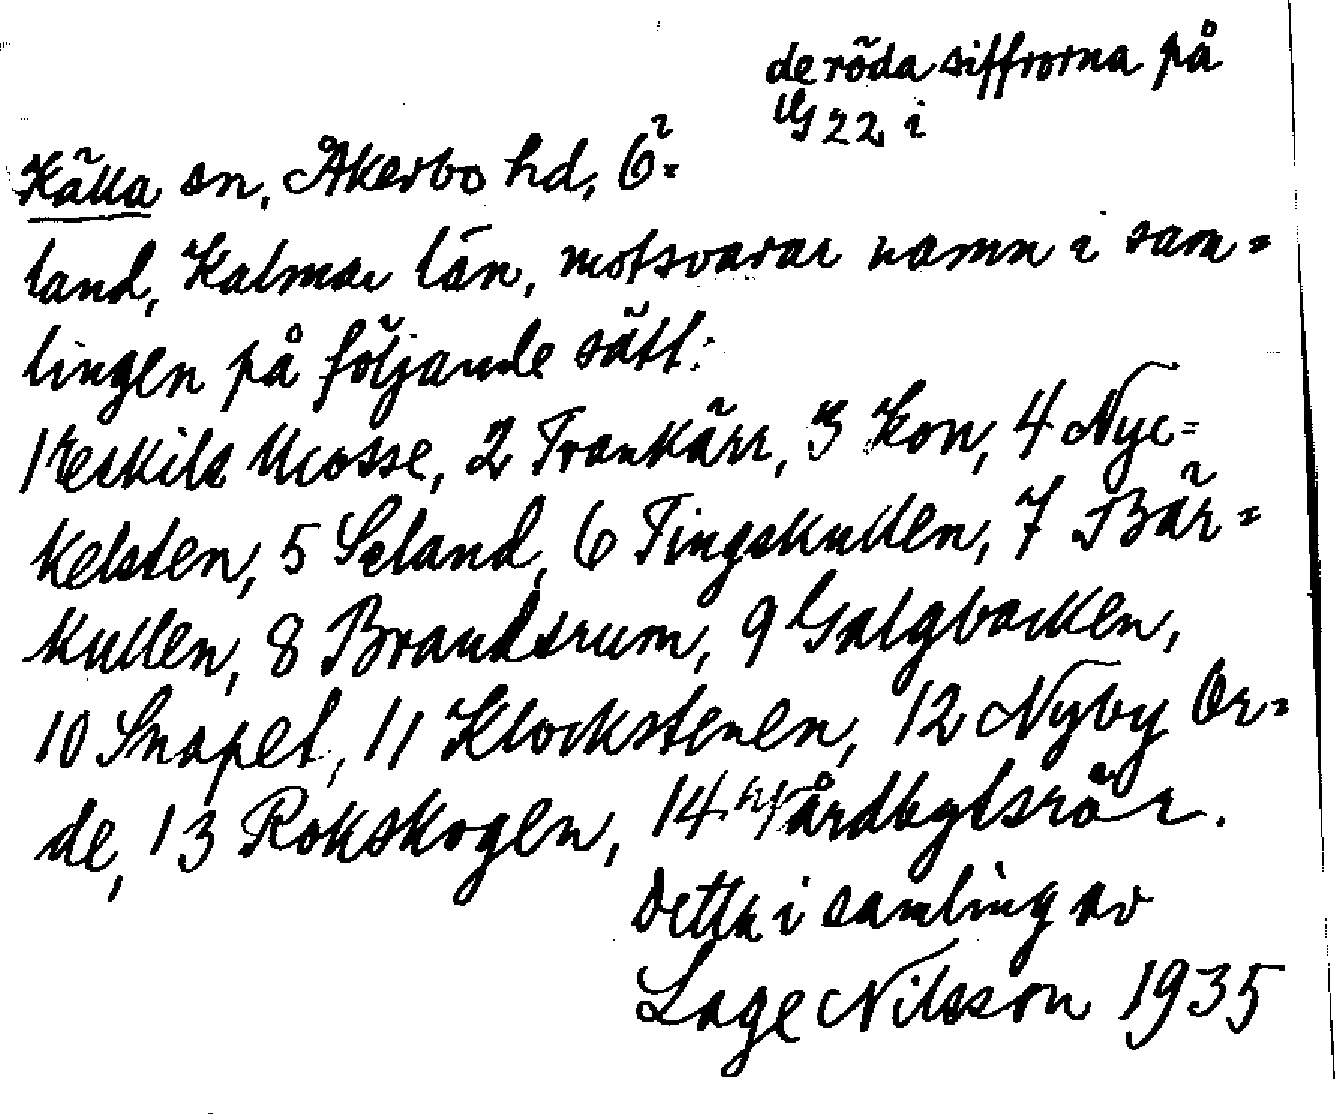 de röda siffrorna på
UG 22 i
Källa sn, Åkerbo hd, Ö=
land, Kalmar län, motsvarar namn i sam=
lingen på följande sätt:
1 Eskils Mosse, 2 Trankärr, 3 Kon, 4 Nyc=
kelsten, 5 Seland, 6 Tingskullen, 7 Bär=
kullen, 8 Brandsrum, 9 Galgbacken,
10 Snapel, 11 Klockstenen, 12 Nyby Or=
de, 13 Rokskogen, 14 Vårdbytsrör.
Detta i samling av
Lage Nilsson 1935